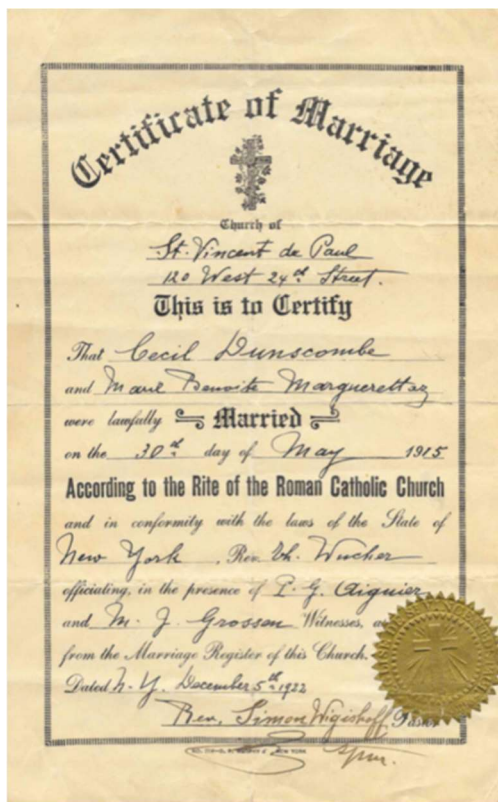 Certificate of Marriage
Church of
St. Vincent de Paul
120 West 24th Street.
This is to Certify
That Cecil Dunscombe
and Benoite Marguerettaz
were lawfully Married
on the 30th day of May 1915
According to the Rite of the Roman Catholic Church
and in conformity with the laws of the State of
New York, Rev. Th. Wucher
officiating, in the presence of P. G. Aiguier
and M. J. Grossen Witnesses, as
from the Marriage Register of this Church.
Dated N. Y. December 5th 1922
Rev. Simon Wigishoff, Pastor
NEW YORK